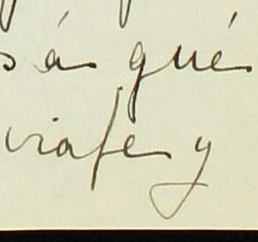 sás qué
viaje y